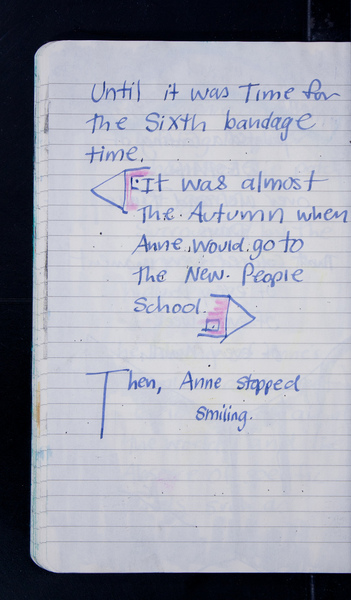 Until it was Time for
the Sixth bandage
time.
It was almost
The. Autumn when
Anne, would go to
the New. People
School.
Then, Anne stopped
smiling.